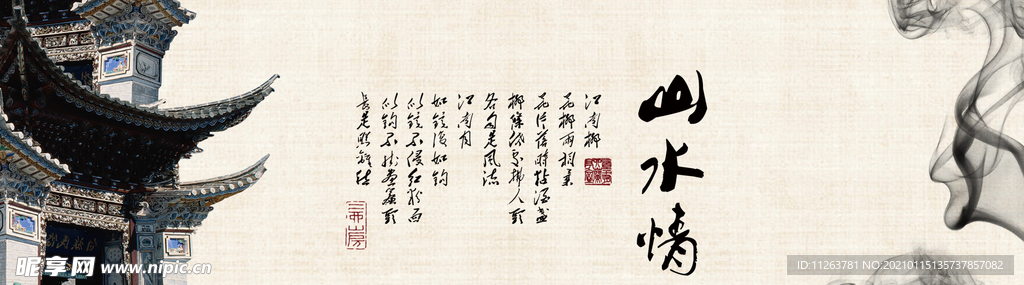 山水情
江南柳
花柳两相柔
花片落时黏酒盏
柳条低处拂人头
各自是风流
江南月
如镜复如钩
似镜不侵红粉面
似钩不挂画帘头
长是照离愁
昵享网 www.nipic.cn
ID:11263781 NO:20210115135737857082